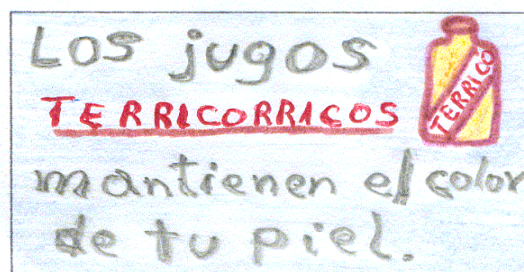 Los jugos
TERRICORRICOS
TERRICO
mantienen el color
de tu piel.